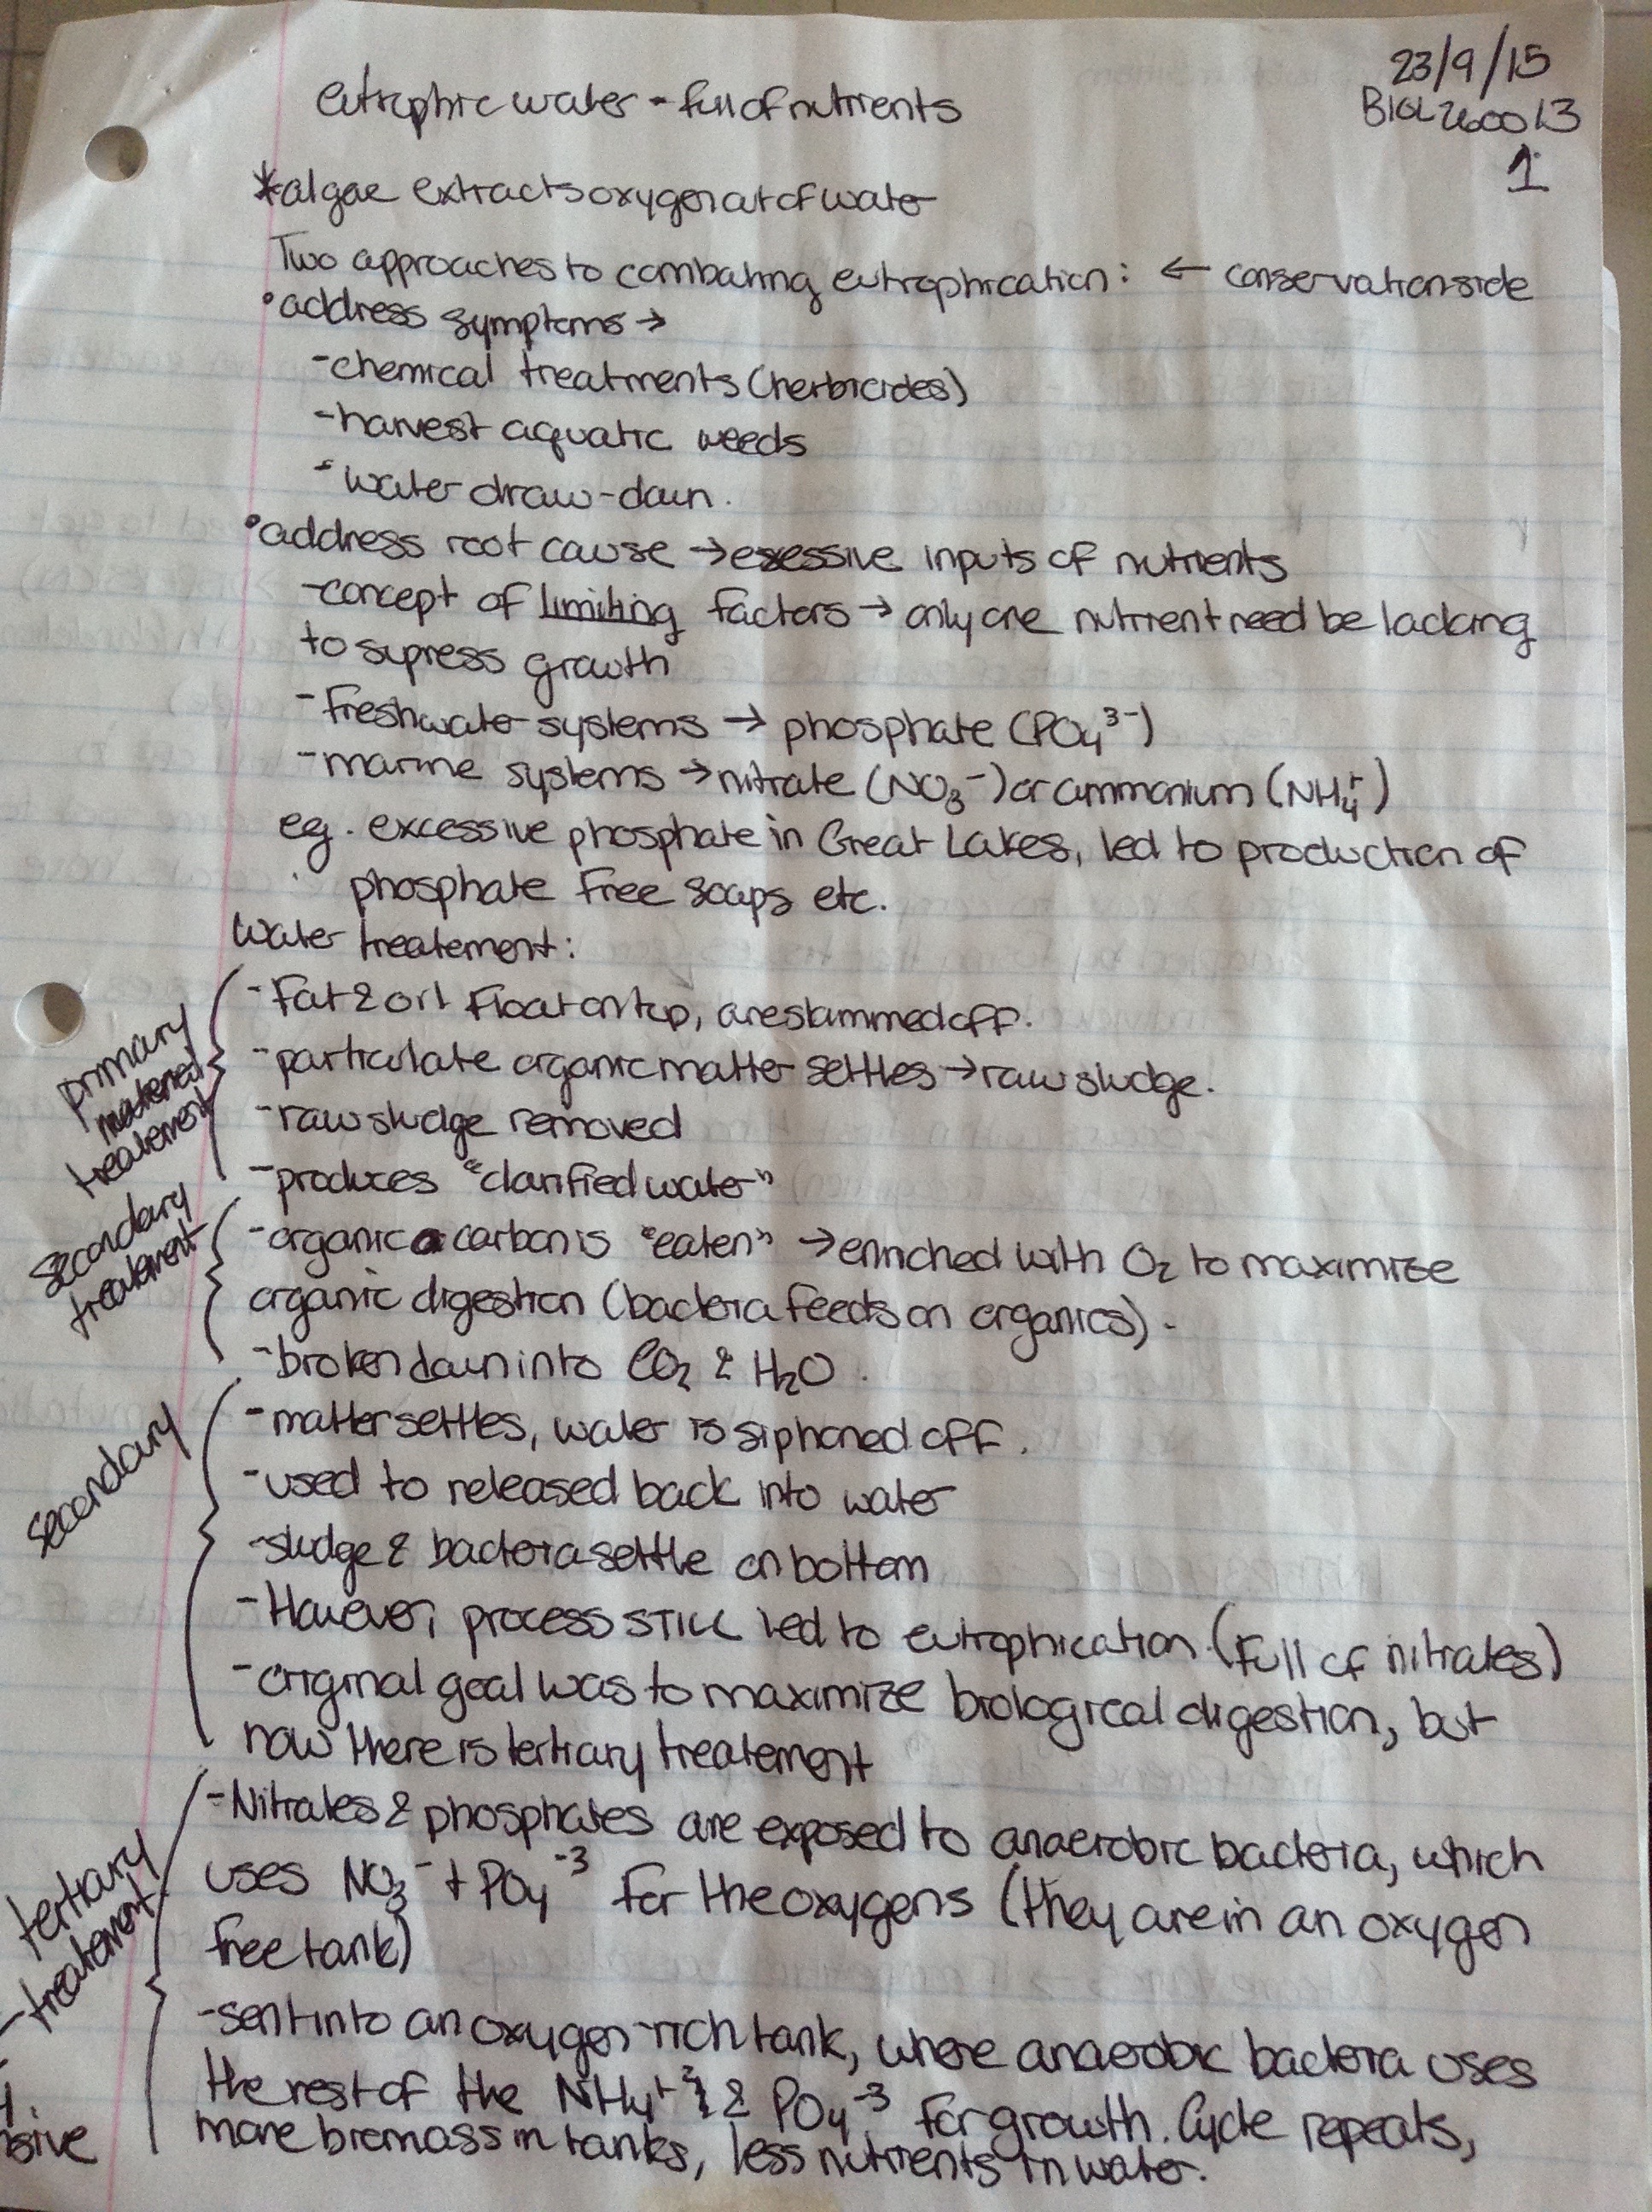 23/9/15
BIOL 2600 L3
1
eutrophic water - full of nutrients
*algae extracts oxygen out of water
Two approaches to combating eutrophication: ← conservation side
•address symptoms →
-chemical treatments (herbicides)
-harvest aquatic weeds
-water draw-down.
•address root cause → exessive inputs of nutrients
-concept of limiting factors → only one nutrient need be lacking
to supress growth
-freshwater systems → phosphate (PO₄³⁻)
-marine systems → nitrate (NO₃⁻) or ammonium (NH₄⁺)
eg. excessive phosphate in Great Lakes, led to production of
phosphate free soaps etc.
Water treatement:
primary
treatement
-Fat & oil float on top, are skimmed off.
-particulate organic matter settles → raw sludge.
-raw sludge removed
-produces "clarified water"
secondary
treatement
-organic carbon is "eaten" → enriched with O₂ to maximize
organic digestion (bacteria feeds on organics).
-broken down into CO₂ & H₂O.
secondary
-matter settles, water is siphoned off.
-used to released back into water
-sludge & bacteria settle on bottom
-However, process STILL led to eutrophication (full of nitrates)
-original goal was to maximize biological digestion, but
now there is tertiary treatement
tertiary
-treatement
-Nitrates & phosphates are exposed to anaerobic bacteria, which
uses NO₃⁻ + PO₄⁻³ for the oxygens (they are in an oxygen
free tank)
-sent into an oxygen-rich tank, where anaerobic bacteria uses
the rest of the NH₄⁺ & PO₄⁻³ for growth. Cycle repeats,
more biomass in tanks, less nutrients in water.